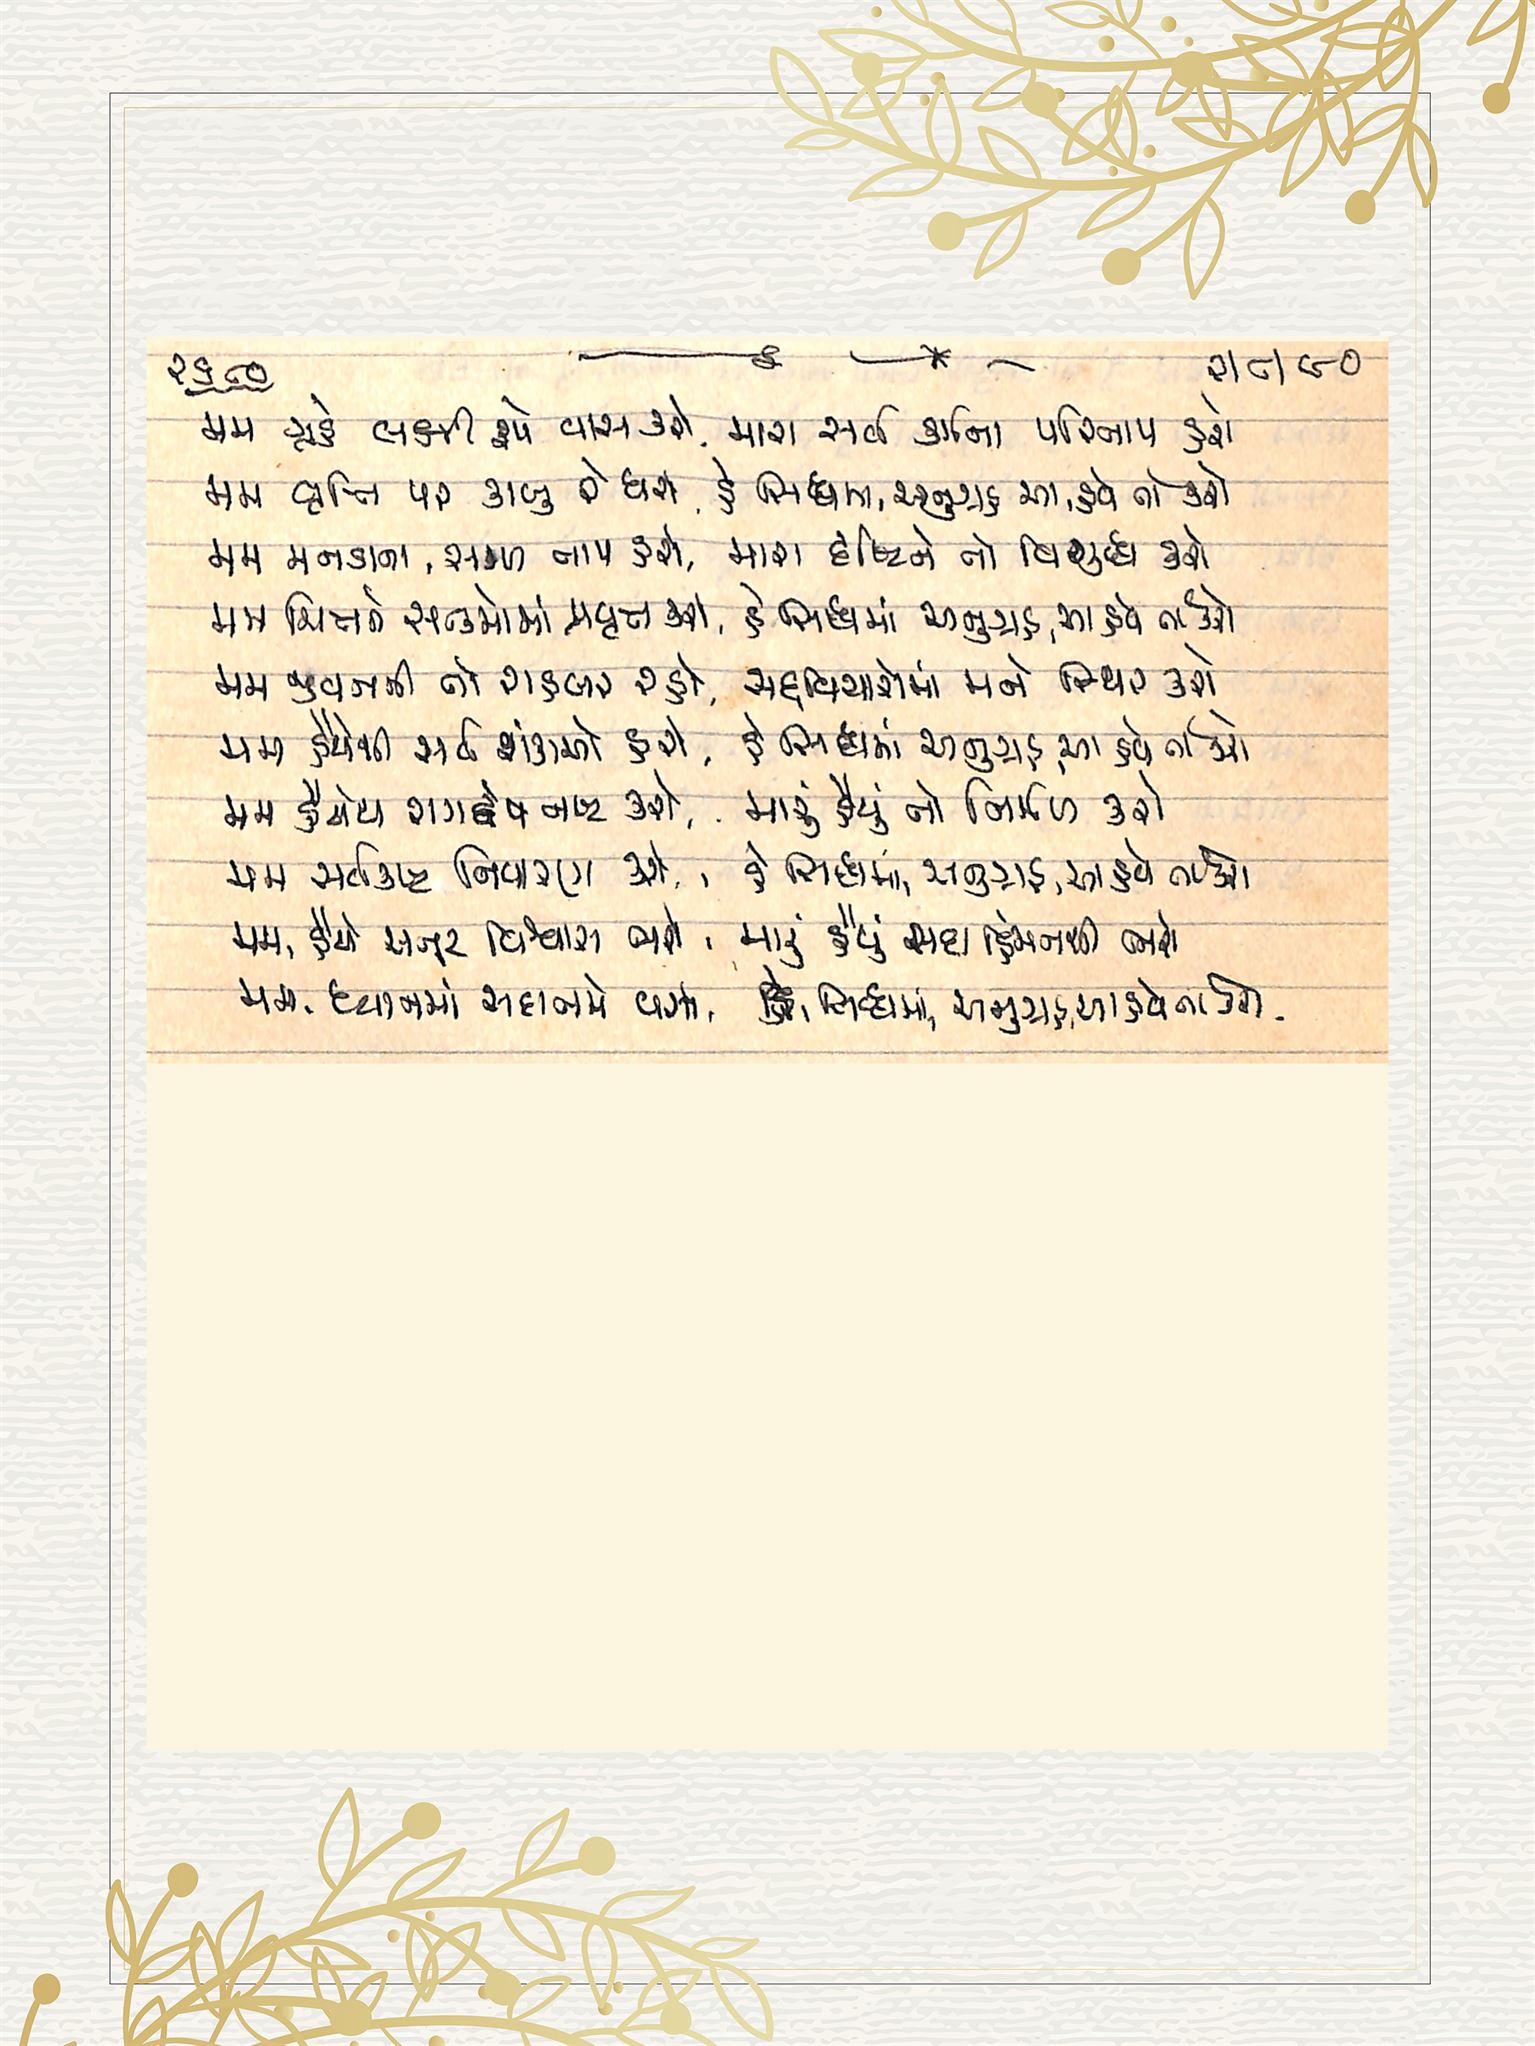 ૨૬૮૦ ૨/૮/૯૦
મમ ગૃહે લક્ષ્મી રૂપે વાસ કરો, મારા સર્વ પરિતાપ હરો
મમ વૃત્તિ પર કાબુ રે ધરો, હે સિધ્ધમા, અનુગ્રહ આ, હવે તો કરો
મમ મનડાના, સઘળા તાપ હરો, મારા દૃષ્ટિને તો વિશુધ્ધ કરો
મમ ચિત્તને સત્કર્મોમાં પ્રવૃત્ત કરો, હે સિધ્ધમાં અનુગ્રહ, આ હવે તો કરો
મમ જીવનની તો રાહબર રહો, સદ્દવિચારોમાં મને સ્થિર કરો
મમ હૈયેથી સર્વ શંકાઓ હરો, હે સિધ્ધમાં અનુગ્રહ, આ હવે તો કરો
મમ હૈયેથી રાગદ્વેષ નષ્ટ કરો, મારું હૈયું તો નિર્મળ કરો
મમ સર્વકષ્ટ નિવારણ કરો, હે સિધ્ધમાં, અનુગ્રહ, આ હવે તો કરો
મમ, હૈયે વિશ્વાસ ભરો, મારું હૈયું સદા હિંમતથી ભરો
મમ, ધ્યાનમાં સદા તમે હે, સિધ્ધમાં, અનુગ્રહ, આ હવે તો કરો.